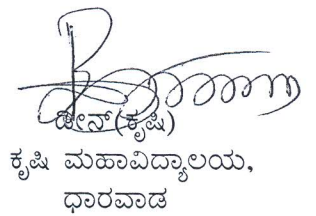 ಡೀನ್(ಕೃಷಿ)
ಕೃಷಿ ಮಹಾವಿದ್ಯಾಲಯ,
ಧಾರವಾಡ